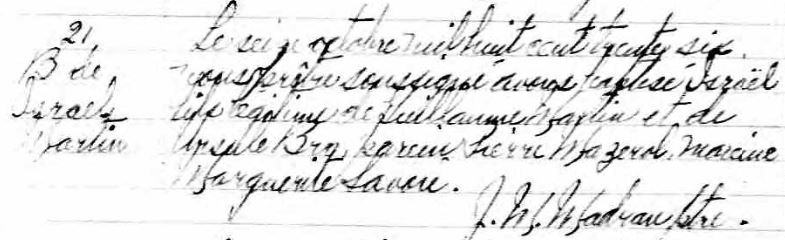 21
B de
Israel
Martin
Le seize octobre mil huit cent trente six.
nous prêtre soussigné avons baptisé Israël
fils légitime de Guillaume Martin et de
Ursule Parrein Pierre Mazerol, Maraine
Marguerite Savoie.
J. M. Madran ptre.